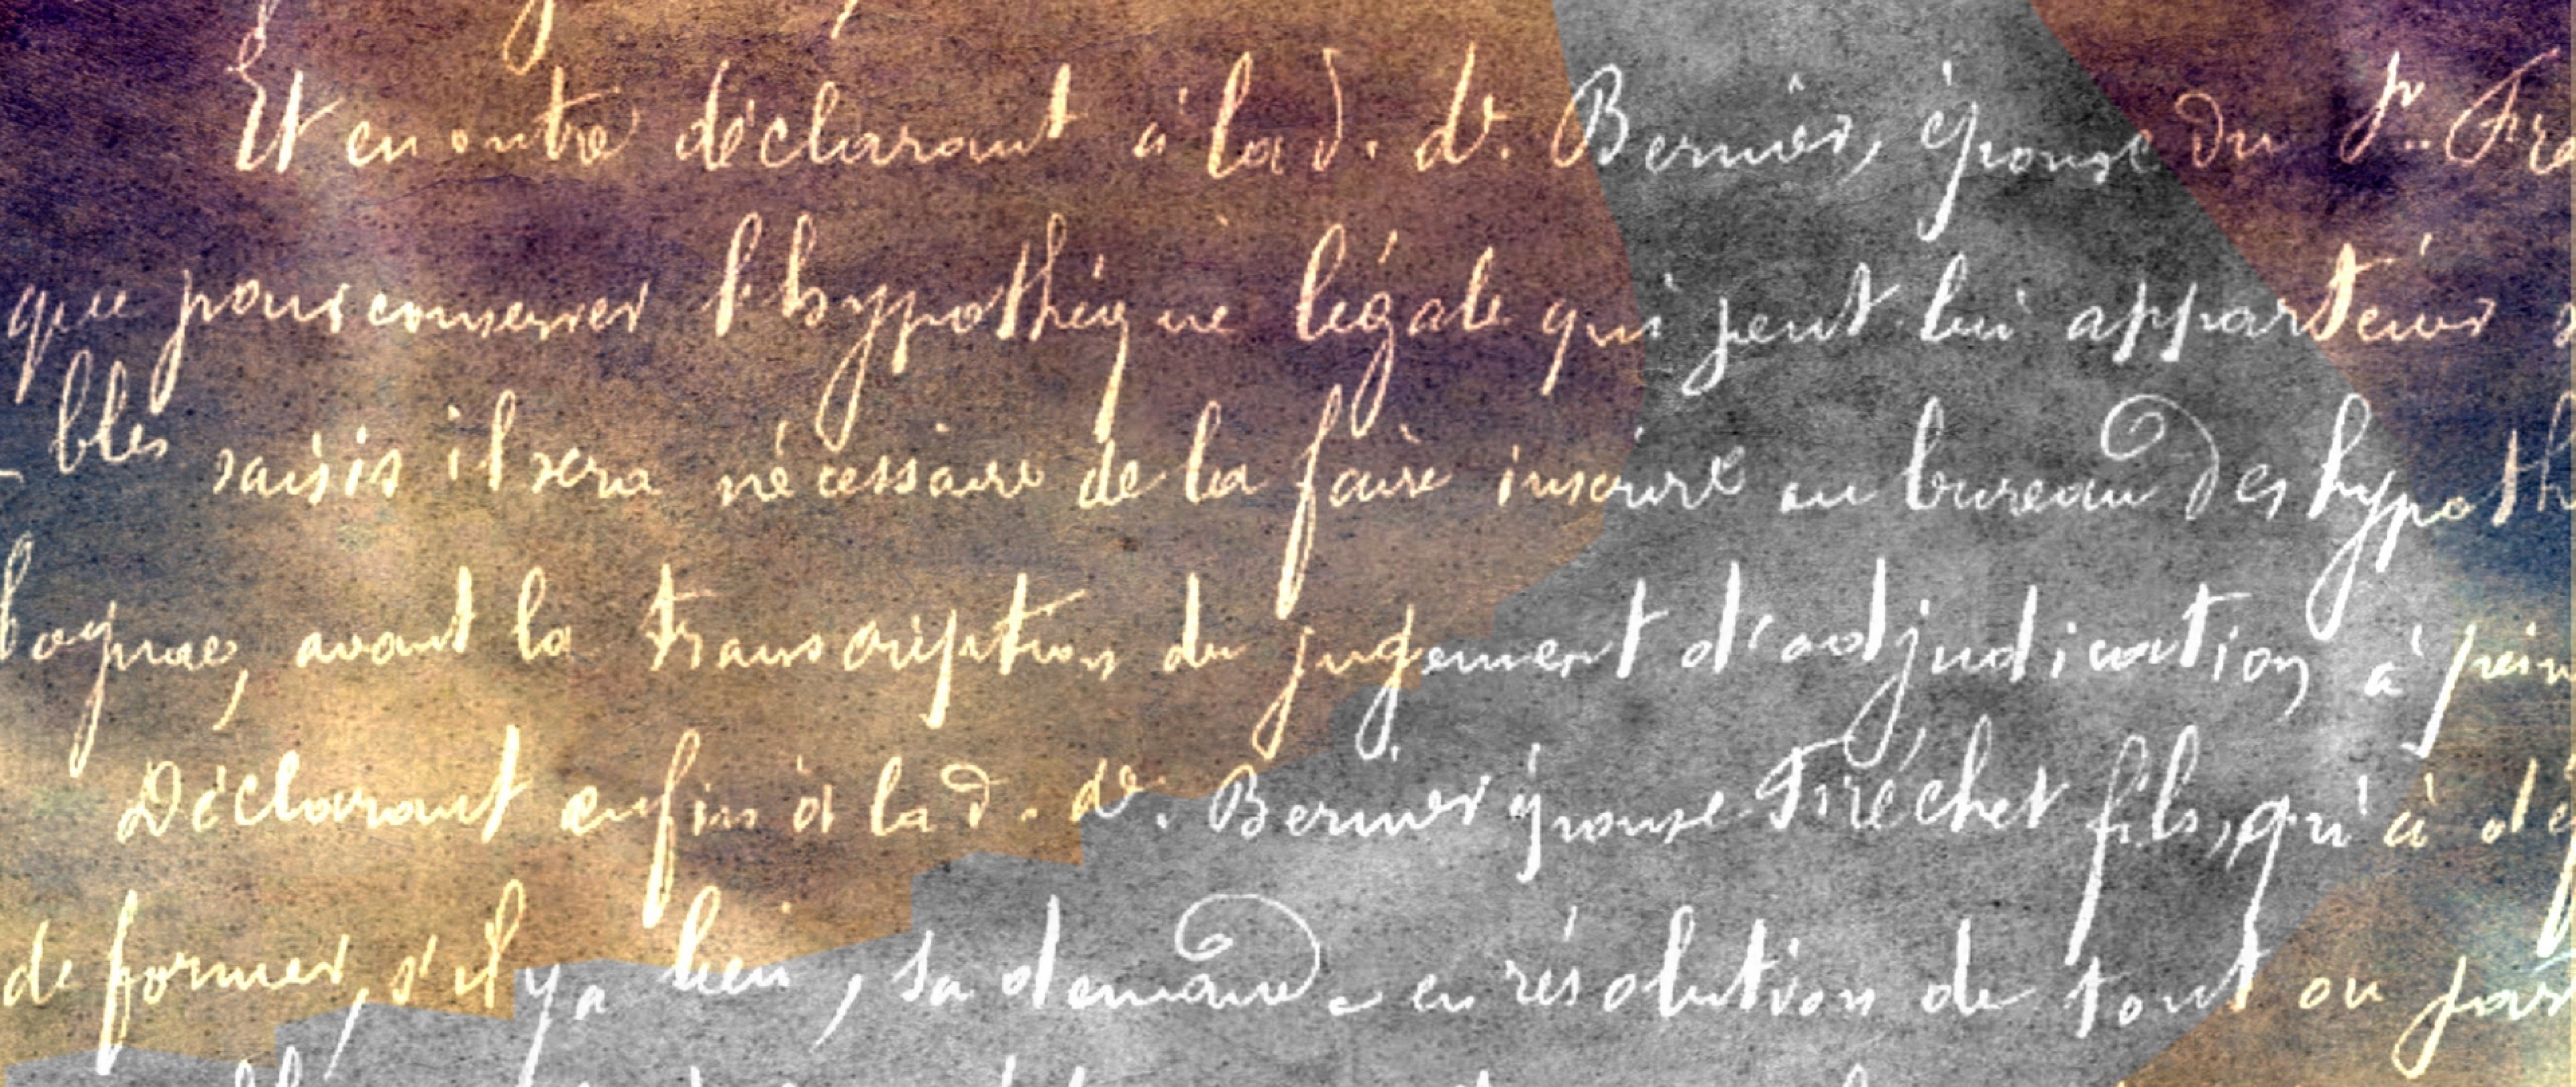 Et en outre déclarant à la d. de. Bernier, épouse du Sr. Fré
que pour conserver l'hypothèque légale qui peut lui appartenir s
- bles saisis il sera nécessaire de la faire inscrire au bureau des hypoth
avant la transcription du jugement d'adjudication à pein
Déclarant enfin à la d. de. Bernier épouse Fréchet fils, qu'à dé
de former, s'il y a lieu, sa demande en résolution de tout ou par